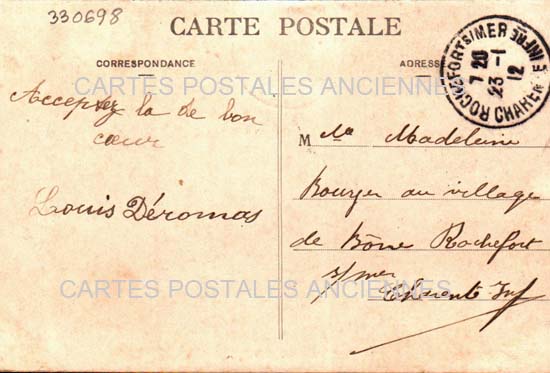 330698
CARTE POSTALE
CORRESPONDANCE
ADRESSE
ROCHEFORT S/MER
CHARENTE INFRE
7 20
23 -1
12
CARTES POSTALES ANCIENNES
Acceptez la de bon
cœur
Louis Déromas
M lle Madeleine
Bourger au village
de Bône Rochefort
s/mer
Charente Inf
CARTES POSTALES ANCIENNES